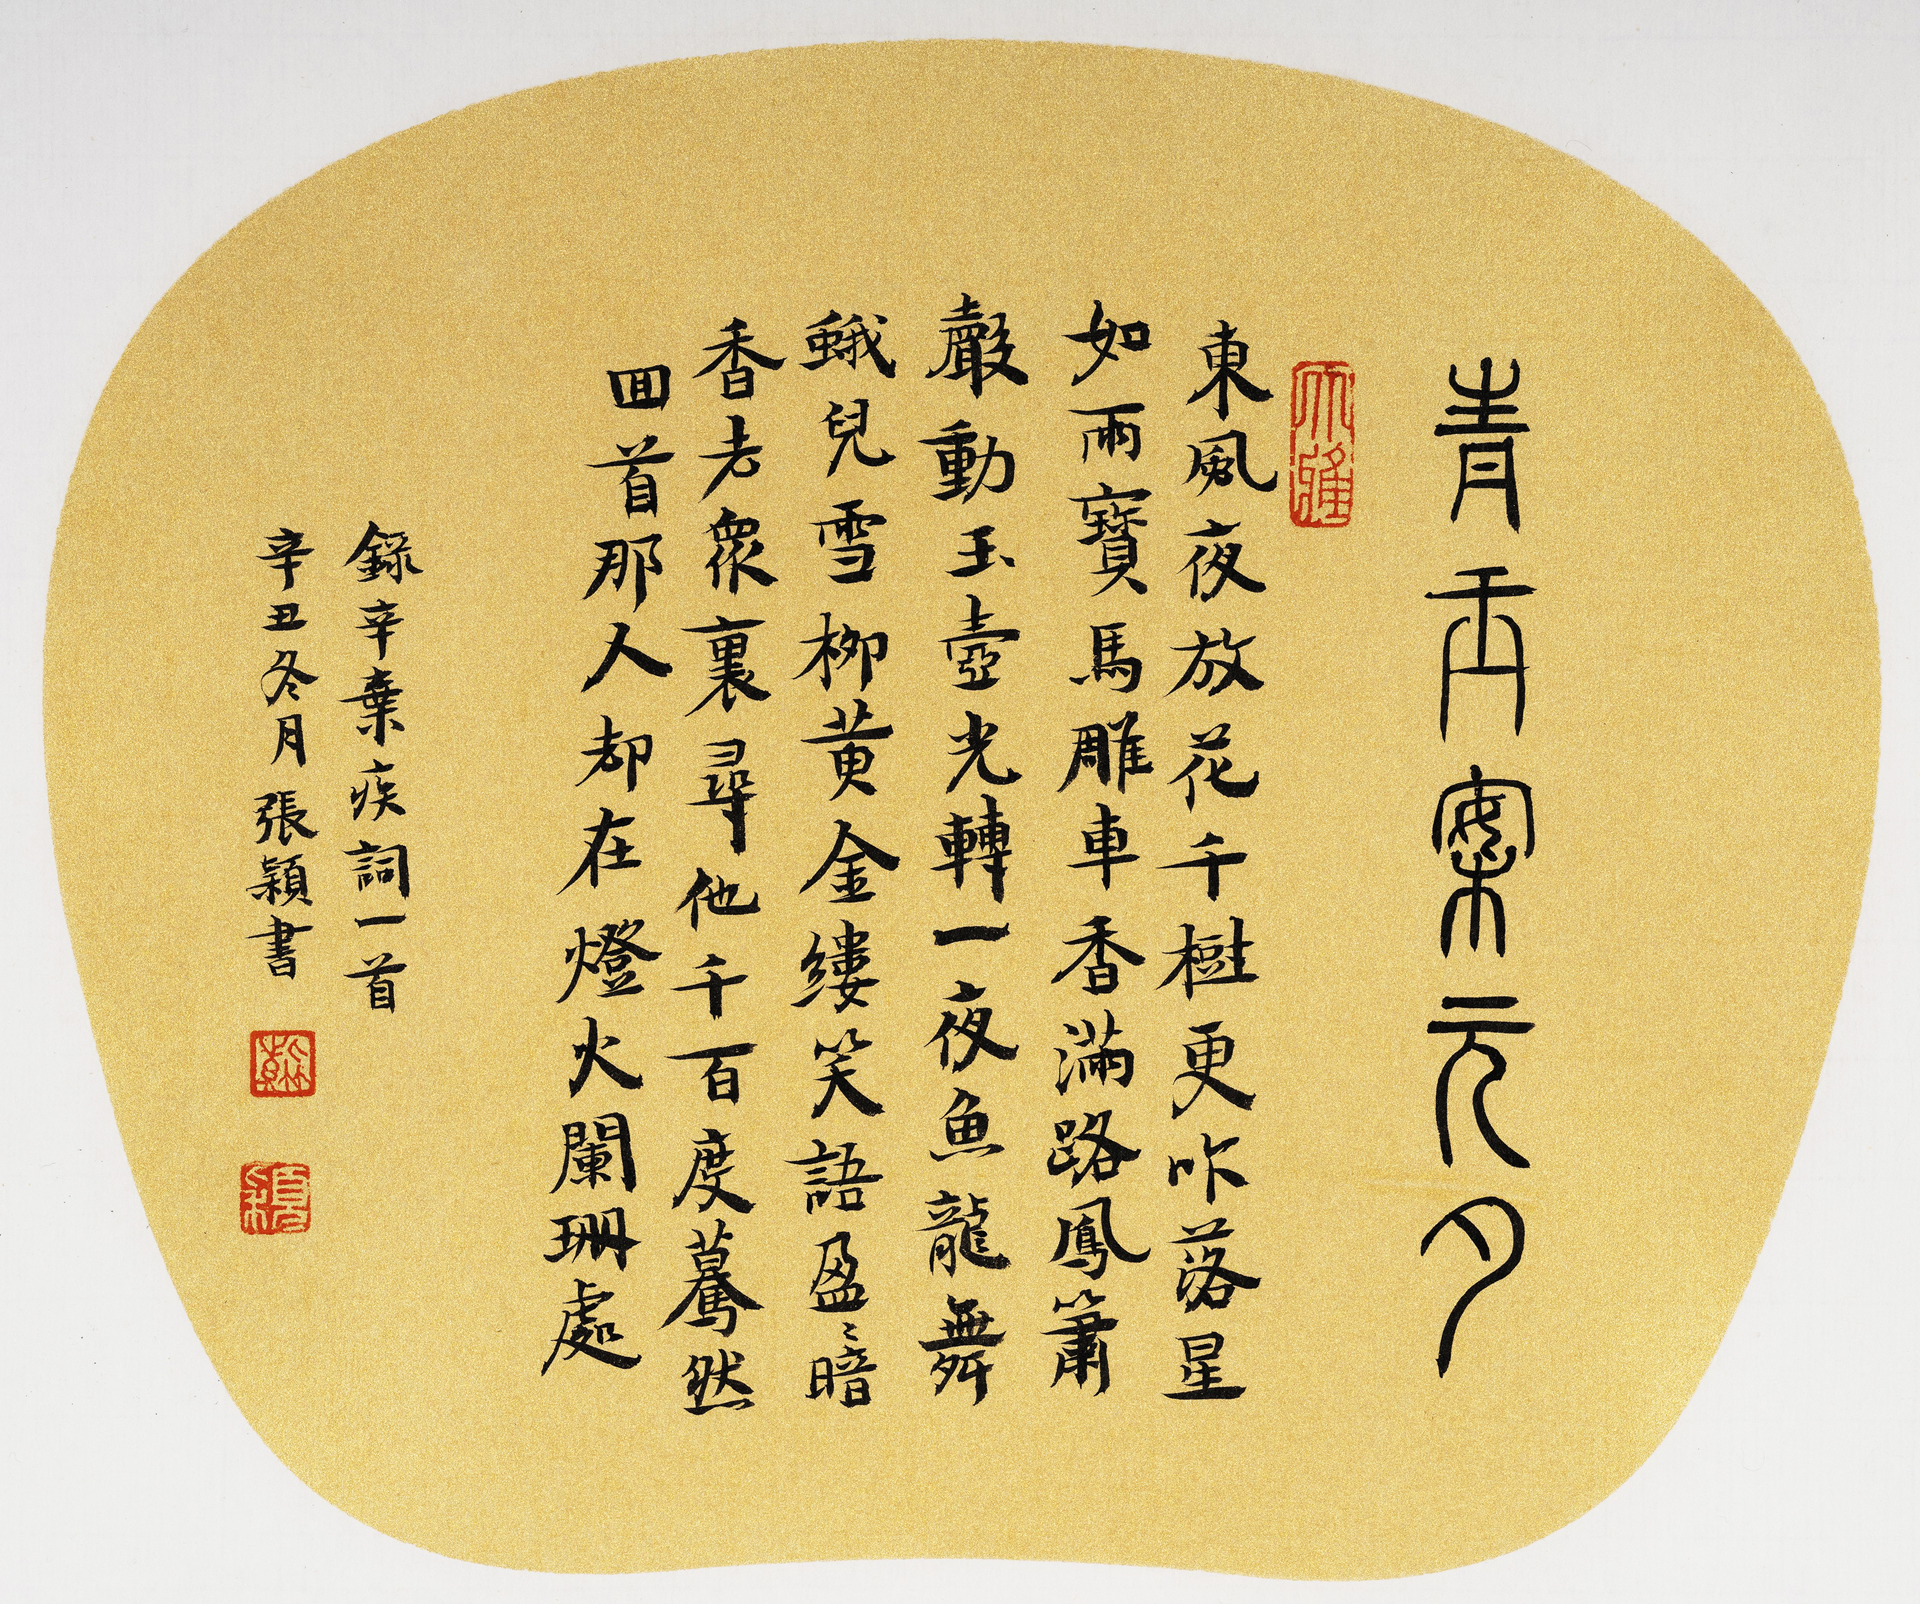 青玉案元夕
大雅
東風夜放花千樹更吹落星
如雨寶馬雕車香滿路鳳簫
聲動玉壺光轉一夜魚龍舞
蛾兒雪柳黄金縷笑語盈〻暗
香去衆裏尋他千百度驀然
回首那人却在燈火闌珊處
錄辛棄疾詞一首
辛丑冬月張穎書